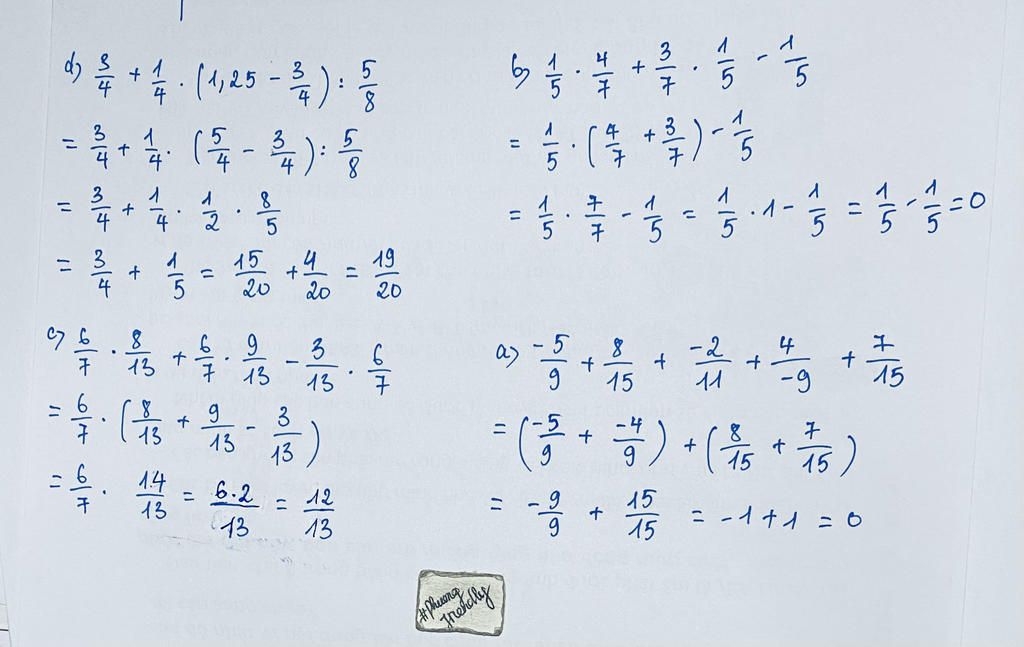 d) 3/4 + 1/4 . (1,25 - 3/4) : 5/8
= 3/4 + 1/4 . (5/4 - 3/4) : 5/8
= 3/4 + 1/4 . 1/2 . 8/5
= 3/4 + 1/5 = 15/20 + 4/20 = 19/20
b) 1/5 . 4/7 + 3/7 . 1/5 - 1/5
= 1/5 . (4/7 + 3/7) - 1/5
= 1/5 . 7/7 - 1/5 = 1/5 . 1 - 1/5 = 1/5 - 1/5 = 0
c) 6/7 . 8/13 + 6/7 . 9/13 - 3/13 . 6/7
= 6/7 . (8/13 + 9/13 - 3/13)
= 6/7 . 14/13 = 6.2/13 = 12/13
a) -5/9 + 8/15 + -2/11 + 4/-9 + 7/15
= (-5/9 + -4/9) + (8/15 + 7/15)
= -9/9 + 15/15 = -1 + 1 = 0
#Phuong
friendly